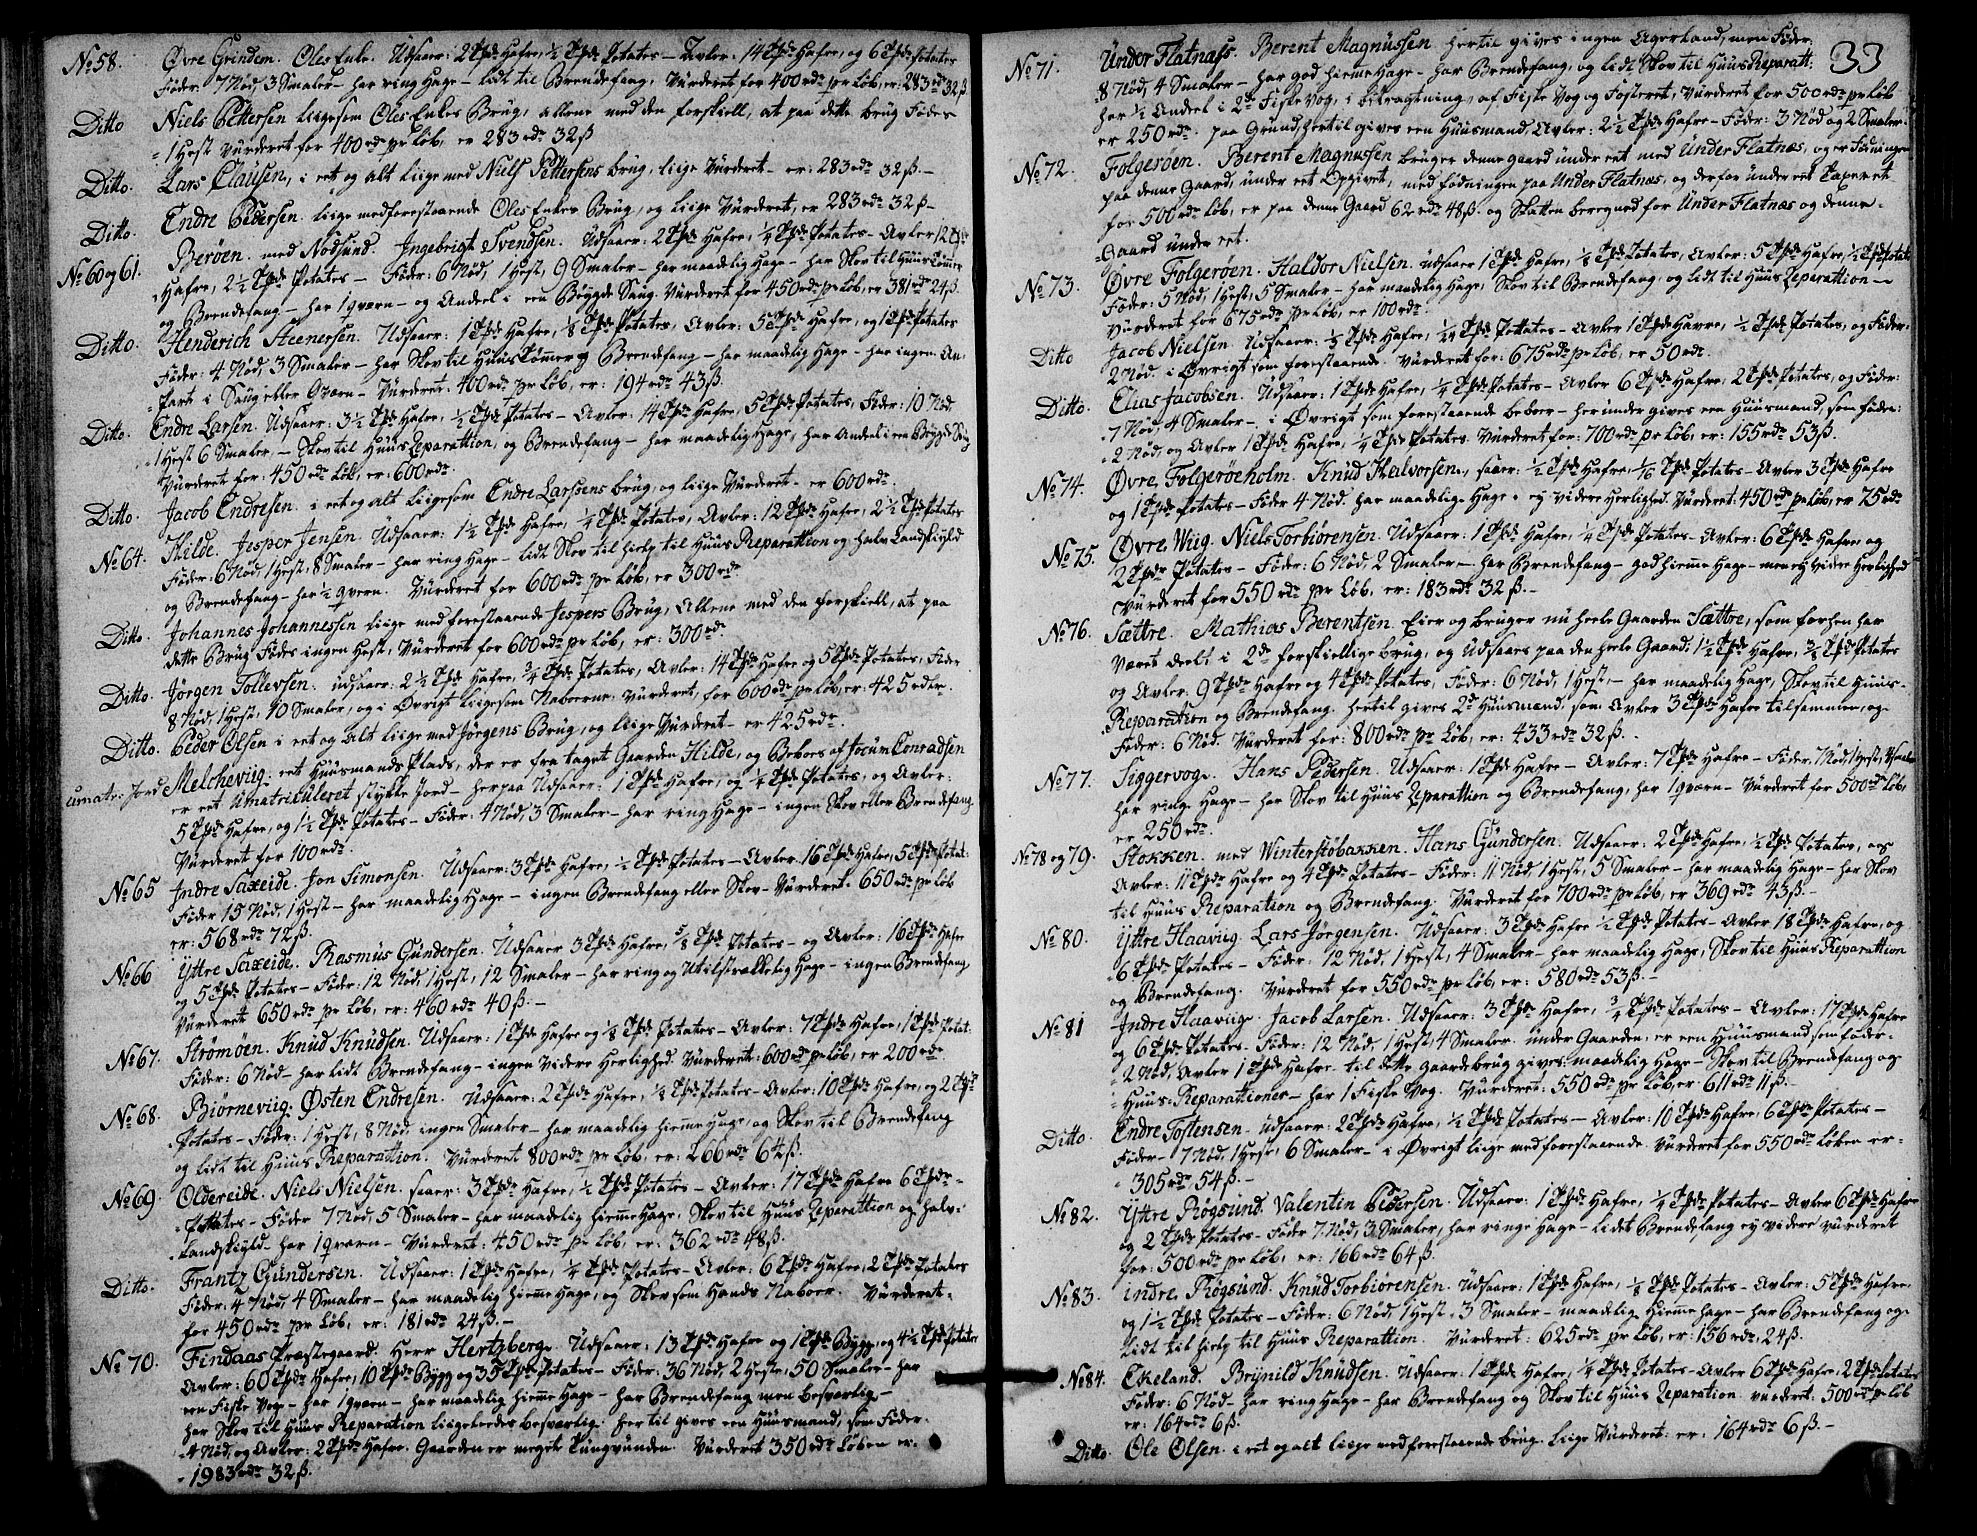 No 58. Øvre Grindem. Oles Enke. Udsaaer: 2 Tpde Hafre, ½ Tpde Potates – Avler: 14 Tpde Hafre, og 6 Tpde Potates
Føder 7 Nød, 3 Smaler – har ring Hage – lidt til Brendefang, Vurderet for 400 rdr pr Løb, er: 283 rdr 32 ß.
Ditto Niels Pettersen ligesom Oles Enkes Brug, allene med den forskiell, at paa dette brug Føder
1 Hest Vurderet for 400 rdr pr Løb, er 283 rdr 32 ß
Ditto. Lars Clausen, i eet og alt liige med Niels Pettersens brug, liige Vurderet – er: 283 rdr 32 ß. –
Ditto. Endre Pedersen liige med forestaaende Oles Enkes Brug, og liige Vurderet, er 283 rdr 32 ß –
No 60 og 61. Berøen. med Nodsund. Ingebrigt Svendsen. Udsaaer: 2 Tpde Hafre, ¼ Tpde Potates – Avler 12 Tpde
Hafre, 2½ Tpde Potates – Føder: 6 Nød, 1 Hest, 9 Smaler – har maadelig Hage – har Skov til Huus Tømmer
og Brendefang – har 1 qværn – og Andeel i een Bøygde Saug. Vurderet for 450 rdr pr Løb, er 381 rdr 24 ß.
Ditto. Henderich Steenersen. Udsaaer: 1 Tpde Hafre, ⅛ Tpde Potates, Avler: 5 Tpde Hafre, og 1 Tpde Potates
Føder: 4 Nød, 3 Smaler – har Skov til Huus Tømer og Brendefang – har maadelig Hage – har ingen An-
Part i Saug eller Qværn – Vurderet: 400 rdr pr Løb, er: 194 rdr 43 ß.
Ditto. Endre Larsen. Udsaaer: 3½ Tpde Hafre, ½ Tpde Potates – Avler: 14 Tpde Hafre, 5 Tpde Potates, Føder: 10 Nød
1 Hest 6 Smaler, – Skov til Huus Reparattion, og Brendefang – har maadelig Hage, har Andel i een Bøygde Saug
Vurderet for: 450 rdr Løb, er: 600 rdr.
Ditto. Jacob Endresen. i eet og alt liigesom Endre Larsens brug, og liige Vurderet – er 600 rdr.
No 64. Hilde. Jesper Jensen. Udsaaer: 1½ Tpde Hafre, ¼ Tpde Potates, Avler: 12 Tpde Hafre, 2½ Tpde Potates
Føder: 6 Nød, 1 Hest, 8 Smaler – har ring Hage – lidt Skov til hielp til Huus Reparattion og halv Landskyld
og Brendefang – har ½ qværn. Vurderet for 600 rdr pr Løb, er 300 rdr.
Ditto. Johannes Johannessen liige med forestaaende Jespers Brug, Allene med den forskiell, at paa
dette Brug Føder ingen Hest, Vurderet for 600 rdr pr Løb, er: 300 rdr.
Ditto. Jørgen Tollevsen. udsaaer: 2½ Tpde Hafre, ¾ Tpde Potates, Avler: 14 Tpde Hafre og 5 Tpde Potates, Føder
8 Nød, 1 Hest, 10 Smaler, og i Øvrigt liigesom Naboerne Vurderet, for 600 rdr pr Løb, er: 425 rdr.
Ditto. Peder Olsen i eet og Alt liige med Jørgens Brug, og liige Vurderet – er 425 rdr.
umatr: Jord Melcheviig: eet Huusmands Plads, der er fra taget Gaarden Hilde, og Beboes af Jocum Conradsen
er eet Umatriculeret stykke Jord – her paa Udsaaer: 1 Tpde Hafre, og ¼ Tpde Potates, og Avler:
5 Tpde Hafre, og 1½ Tpde Potates – Føder: 4 Nød, 3 Smaler – har ring Hage – ingen Skov eller Brendefang
Vurderet for 100 rdr.
No 65 Indre Saxeide. Jon Simonsen. Udsaaer: 3 Tpde Hafre, ½ Tpde Potates – Avler: 16 Tpde Hafre, 5 Tpde Potat:
Føder 15 Nød, 1 Hest – har maadelig Hage – ingen Brendefang eller Skov – Vurderet. 650 rdr pr Løb
er: 568 rdr 72 ß.
No 66 Yttre Saxeide. Rasmus Gundersen. Udsaaer 3 Tpde Hafre, ⅝ Tpde Potates – og Avler: 16 Tpde Hafre
og 5 Tpde Potates – Føder: 12 Nød, 1 Hest, 12 Smaler – har ring og Utilstrækkelig Hage – ingen Brendefang
Vurderet 650 rdr pr Løb, er: 460 rdr 40 ß. –
No 67. Strømøen. Knud Knudsen. Udsaaer: 1 Tpde Hafre og ⅛ Tpde Potates – Avler: 7 Tpde Hafre, 1 Tpde Potat:
Føder: 6 Nød – har lidt Brendefang – ingen Videre Herlighed. Vurderet: 600 rdr pr Løb, er 200 rdr.
No 68. Biørneviig: Østen Endresen. Udsaaer: 2 Tpde Hafre, ⅛ Tpde Potates – Avler: 10 Tpde Hafre, og 2 Tpde
Potates – Føder: 1 Hest, 8 Nød, ingen Smaler – har maadelig hieme Hage, og Skov til Brendefang
og lidt til Huus Reparattion. Vurderet 800 rdr pr Løb, er: 266 rdr 64 ß.
No 69. Oldereide. Niels Nielsen. saaer: 3 Tpde Hafre, ½ Tpde Potates – Avler: 17 Tpde Hafre 6 Tpde
Potates – Føder 7 Nød, 5 Smaler – har maadelig hieme Hage. Skov til Huus Reparattion og halv-
Landskyld – har 1 qværn – Vurderet: 450 rdr pr Løb, er: 362 rdr 48 ß.
Ditto. Frantz Gundersen. Udsaaer: 1 Tpde Hafre, ¼ Tpde Potates – Avler: 6 Tpde Hafre, 2 Tpde Potates
Føder: 4 Nød, 4 Smaler – har maadelig hieme Hage, og Skov som Hands Naboer. Vurderet
for 450 rdr pr Løb, er: 181 rdr 24 ß. –
No 70. Findaas Præstegaard. Herr Hertzberg. Udsaaer: 13 Tpde Hafre og 1 Tpde Bygg, og 4½ Tpde Potates
Avler: 60 Tpde Hafre, 10 Tpde Bygg og 35 Tpde Potates – Føder: 36 Nød, 2 Heste, 50 Smaler – har
een Fiske Vog – har 1 qværn – har maadelig hieme Hage – har Brendefang men besværlig –
har Skov til Huus Reparation liigeledes besværlig. her til gives een Huusmand, som Føder.
4 Nød, og Avler: 2 Tpde Hafre. Gaarden er meget Tungvunden. Vurderet 350 rdr Løben er:
1983 rdr 32 ß.
33
No 71. Under Flatnæss. Berent Magnussen hertil gives ingen Agerland, men Føder,
8 Nød, 4 Smaler – har god hieme Hage – har Brendefang, og lidt Skov til Huus Reparatt:
har ½ Andeel i 2de Fiske Vog, i bitragtning, af Fiske Vog og Fosteret, Vurderet for 500 rdr pr Løb
er 250 rdr. paa Grund, hertil gives een Huusmand, Avler: 2½ Tpde Hafre – Føder: 3 Nød og 2 Smaler.
No 72. Folgerøen. Berent Magnussen bruger denne gaard under eet med Under Flatnæs, og er Fødningen
paa denne Gaard, under eet Opgivet, med fødningen paa Under Flatnæs, og derfor under eet Taxeret
for 500 rdr Løb, er paa denne Gaard 62 rdr 48 ß. og Skatten beregned for Under Flatnæs og denne
Gaard under eet.
No 73. Øvre Folgerøen. Haldor Nielsen. udsaaer 1 Tpde Hafre, ⅛ Tpde Potates, Avler: 5 Tpde Hafre, ½ Tpde Potat:
Føder: 5 Nød, 1 Hest, 5 Smaler – har maadelig Hage, Skov til Brendefang, og lidt til Huus Reparation –
Vurderet for 675 rdr pr Løb, er 100 rdr.
Ditto Jacob Nielsen. Udsaaer: ½ Tpde Hafre, 1/24 Tpde Pottates – Avler 1 Tpde Havre, ½ Tpde Potates, og Føder.
2 Nød. i Øvrigt som forestaaende. Vurderet for: 675 rdr pr Løb, er 50 rdr.
Ditto. Elias Jacobsen. Udsaaer: 1 Tpde Hafre, ¼ Tpde Potates – Avler 6 Tpde Hafre, 2 Tpde Potates, og Føder:
7 Nød, 4 Smaler –, i Øvrigt som forestaaende beboer – her under gives een Huusmand, som Føder:
2 Nød, og Avler 1 Tpde Hafre, ¼ Tpde Potates. Vurderet for: 700 rdr pr Løb, er: 155 rdr 53 ß.
No 74. Øvre Folgerøeholm. Knud Halvorsen., saaer: ½ Tpde Hafre, 1/16 Tpde Potates – Avler 3 Tpde Hafre
og 1 Tpde Potates – Føder 4 Nød. har maadelige Hage – ey videre Herlighed. Vurderet: 450 rdr pr Løb, er 75 rdr
No 75. Øvre Wiig. Niels Torbiørensen. Udsaaer: 1 Tpde Hafre, ¼ Tpde Potates – Avler: 6 Tpde Hafre og
2 Tpde Potates – Føder: 6 Nød, 2 Smaler – har Brendefang – god hieme Hage – men ey Videre Herlighed
Vurderet for 550 rdr pr Løb, er: 183 rdr 32 ß. –
No 76. Sættre. Mathias Berentsen. Eier og bruger nu heele Gaarden Sættre, som forhen har
Været deelt i 2de forskiellige brug, og Udsaaer paa den heele Gaard: 1½ Tpde Hafre, ⅜ Tpde Potates
og Avler: 9 Tpde Hafre og 4 Tpde Potates, Føder: 6 Nød, 1 Hest, – har maadelig Hage, Skov til Huus-
Reparation og Brendefang. hertil gives 2de Huusmænd, som Avler 3 Tpde Hafre tilsammen, og
Føder: 6 Nød. Vurderet for: 800 rdr pr Løb, er: 433 rdr 32 ß.
No 77. Siggervog. Hans Pedersen. Udsaaer: 1 Tpde Hafre – Avler: 7 Tpde Hafre – Føder: 7 Nød, 1 Hest, 4 Smaler
har ringe Hage – har Skov til Huus Reparattion og Brendefang, har 1 qværn – Vurderet for 500 rdr Løb,
er 250 rdr.
No 78 og 79. Stokken. med Winterstøbakken. Hans Gundersen. Udsaaer: 2 Tpde Hafre, ½ Tpde Potates, og
Avler: 11 Tpde Hafre og 4 Tpde Potates – Føder: 11 Nød, 1 Hest, 5 Smaler – har maadelig Hage – har Skov
til Huus Reparation og Brendefang. Vurderet for 700 rdr pr Løb, er 369 rdr 43 ß. –
No 80. Yttre Haaviig. Lars Jørgensen. Udsaaer: 3 Tpde Hafre ½ Tpde Potates – Avler 18 Tpde Hafre, og
6 Tpde Potates – Føder: 12 Nød, 1 Hest, 4 Smaler – har maadelig Hage, Skov til Huus Reparattion
og Brendefang. Vurderet for 550 rdr pr Løb, er: 580 rdr 53 ß. –
No 81 Indre Haaviig. Jacob Larsen. Udsaaer: 3 Tpde Hafre, ¾ Tpde Potates – Avler: 17 Tpde Hafre
og 6 Tpde Potates – Føder: 12 Nød, 1 Hest, 4 Smaler. under Gaarden, er een Huusmand som føder
2 Nød, Avler 1 Tpde Hafre – til dette gaardebrug gives: maadelig Hage – Skov til Brendefang og
Huus-Reparationer – har 1 Fiske Vog. Vurderet: 550 rdr pr Løb, er 611 rdr 11 ß. –
Ditto. Endre Tostensen – udsaaer: 2 Tpde Hafre, ½ Tpde Potates – Avler: 10 Tpde Hafre, 6 Tpde Potates –
Føder – 7 Nød, 1 Hest, 6 Smaler – i Øvrigt liige med forestaaende Vurderet for 550 rdr Løben er
305 rdr 54 ß. –
No 82. Yttre Røgsund. Valentin Pedersen. Udsaaer: 1 Tpde Hafre, ¼ Tpde Potates – Avler 6 Tpde Hafre
og 2 Tpde Potates – Føder 7 Nød, 3 Smaler, har ringe Hage – lidet Brendefang ey videre vurderet
for: 500 rdr pr Løb, er: 166 rdr 64 ß.
No 83. indre Røgsund. Knud Torbiørensen. Udsaaer: 1 Tpde Hafre, ⅛ Tpde Potates – Avler: 5 Tpde Hafre,
og 1½ Tpde Potates – Føder: 6 Nød, 1 Hest, 3 Smaler – maadelig Hieme hage – har Brendefang og
lidt til hielp til Huus Reparattion. Vurderet: 625 rdr pr Løb, er: 156 rdr, 24 ß.
No 84. Ekeland. Brynild Knudsen. Udsaaer: 1 Tpde Hafre, ¼ Tpde Potates – Avler 6 Tpde Hafre, 2 Tpde Potates
Føder: 6 Nød – har ring Hage – har Brendefang og Skov til Huus Reparation. vurderet: 500 rdr pr Løb
er: 164 rdr 6 ß.
Ditto. Ole Olsen. i eet og alt liige med forestaaende brug. liige Vurderet: er: 164 rdr 6 ß. –